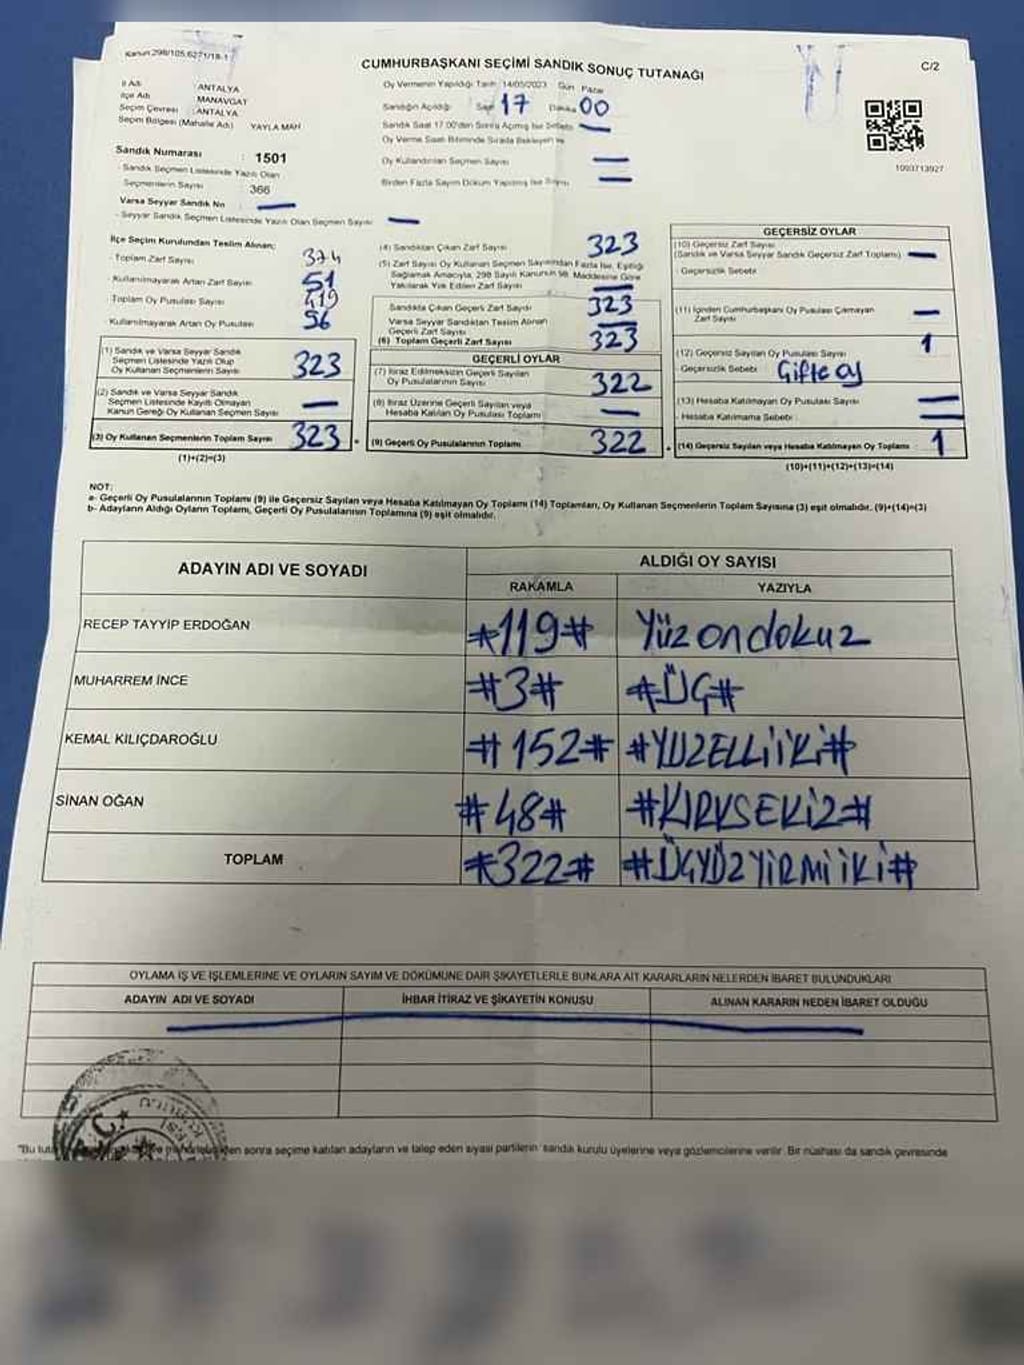 Kanun 298/105.6271/18-1
CUMHURBAŞKANI SEÇİMİ SANDIK SONUÇ TUTANAĞI
C/2
İl Adı ANTALYA
İlçe Adı MANAVGAT
Seçim Çevresi : ANTALYA
Seçim Bölgesi (Mahalle Adı) YAYLA MAH
Oy Vermenin Yapıldığı Tarih 14/05/2023 Gün Pazar
Sandığın Açıldığı Saat 17 Dakika 00
Sandık Saat 17.00'den Sonra Açılmış İse Sebebi
Oy Verme Saati Bitiminde Sırada Bekleyen ve
Oy Kullandırılan Seçmen Sayısı
Birden Fazla Sayım Döküm Yapılmış İse Sayısı
1003713927
Sandık Numarası : 1501
Sandık Seçmen Listesinde Yazılı Olan
Seçmenlerin Sayısı 366
Varsa Seyyar Sandık No
- Seyyar Sandık Seçmen Listesinde Yazılı Olan Seçmen Sayısı
İlçe Seçim Kurulundan Teslim Alınan;
- Toplam Zarf Sayısı 374
- Kullanılmayarak Artan Zarf Sayısı 51
Toplam Oy Pusulası Sayısı 419
- Kullanılmayarak Artan Oy Pusulası 96
(1) Sandık ve Varsa Seyyar Sandık
Seçmen Listesinde Yazılı Olup
Oy Kullanan Seçmenlerin Sayısı 323
(2) Sandık ve Varsa Seyyar Sandık
Seçmen Listesinde Kayıtlı Olmayan
Kanun Gereği Oy Kullanan Seçmen Sayısı
(3) Oy Kullanan Seçmenlerin Toplam Sayısı 323
(1)+(2)=(3)
(4) Sandıktan Çıkan Zarf Sayısı 323
(5) Zarf Sayısı Oy Kullanan Seçmen Sayısından Fazla İse, Eşitliği
Sağlamak Amacıyla, 298 Sayılı Kanunun 98. Maddesine Göre
Yakılarak Yok Edilen Zarf Sayısı
Sandıkta Çıkan Geçerli Zarf Sayısı 323
Varsa Seyyar Sandıktan Teslim Alınan
Geçerli Zarf Sayısı
(6) Toplam Geçerli Zarf Sayısı 323
GEÇERLİ OYLAR
(7) İtiraz Edilmeksizin Geçerli Sayılan
Oy Pusulalarının Sayısı 322
(8) İtiraz Üzerine Geçerli Sayılan veya
Hesaba Katılan Oy Pusulası Toplamı
(9) Geçerli Oy Pusulalarının Toplamı 322
GEÇERSİZ OYLAR
(10) Geçersiz Zarf Sayısı
(Sandık ve Varsa Seyyar Sandık Geçersiz Zarf Toplamı)
- Geçersizlik Sebebi
(11) İçinden Cumhurbaşkanı Oy Pusulası Çıkmayan
Zarf Sayısı
(12) Geçersiz Sayılan Oy Pusulası Sayısı 1
- Geçersizlik Sebebi Çifte oy
(13) Hesaba Katılmayan Oy Pusulası Sayısı
- Hesaba Katılmama Sebebi
(14) Geçersiz Sayılan veya Hesaba Katılmayan Oy Toplamı 1
(10)+(11)+(12)+(13)=(14)
NOT:
a- Geçerli Oy Pusulalarının Toplamı (9) ile Geçersiz Sayılan veya Hesaba Katılmayan Oy Toplamı (14) Toplamları, Oy Kullanan Seçmenlerin Toplam Sayısına (3) eşit olmalıdır. (9)+(14)=(3)
b- Adayların Aldığı Oyların Toplamı, Geçerli Oy Pusulalarının Toplamına (9) eşit olmalıdır.
ADAYIN ADI VE SOYADI
ALDIĞI OY SAYISI
RAKAMLA YAZIYLA
RECEP TAYYİP ERDOĞAN #119# Yüz ondokuz
MUHARREM İNCE #3# #ÜÇ#
KEMAL KILIÇDAROĞLU #152# #YÜZELLİİKİ#
SİNAN OĞAN #48# #KIRKSEKİZ#
TOPLAM #322# #ÜÇYÜZ YİRMİ İKİ#
OYLAMA İŞ VE İŞLEMLERİNE VE OYLARIN SAYIM VE DÖKÜMÜNE DAİR ŞİKAYETLERLE BUNLARA AİT KARARLARIN NELERDEN İBARET BULUNDUKLARI
ADAYIN ADI VE SOYADI İHBAR İTİRAZ VE ŞİKAYETİN KONUSU ALINAN KARARIN NEDEN İBARET OLDUĞU
T.C.
"Bu sonra seçime katılan adayların ve talep eden siyasi partilerin sandık kurulu üyelerine veya gözlemcilerine verilir. Bir nüshası da sandık çevresinde